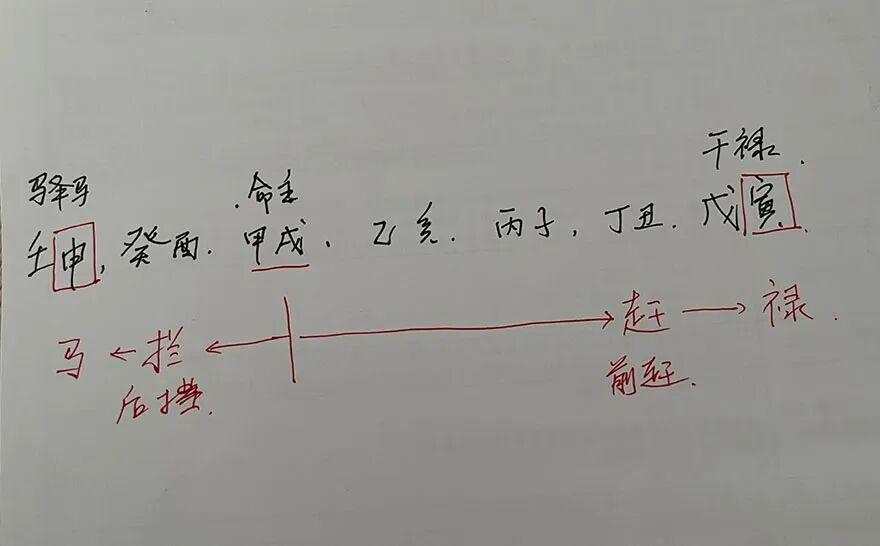 驿马 命主 干禄.
壬申, 癸酉. 甲戌, 乙亥. 丙子, 丁丑. 戊寅.
马 ← 拦 ← → 赶 → 禄.
后挡. 前赶.